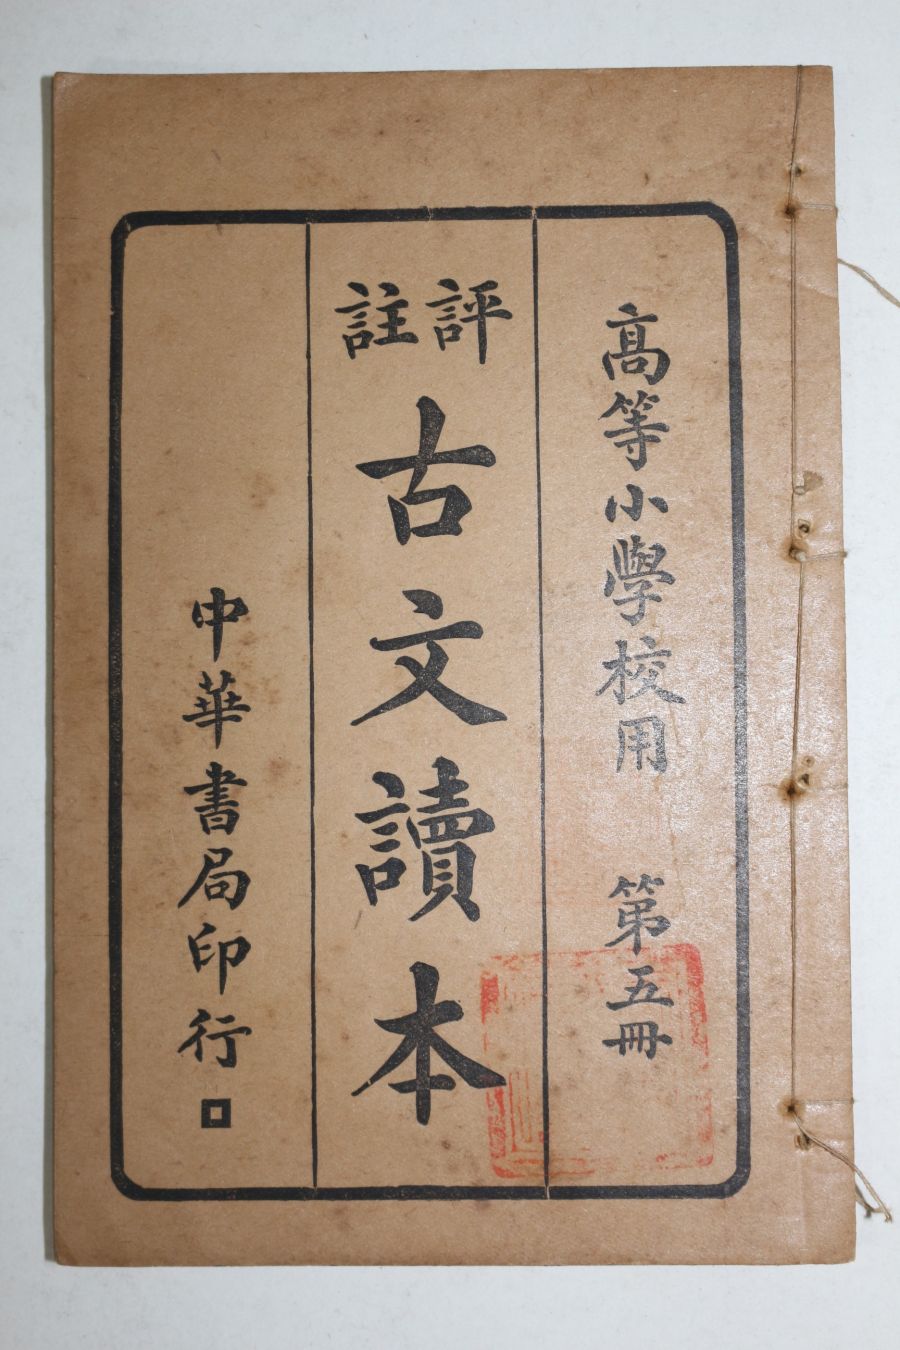 高等小學校用　第五冊
評註
古文讀本
中華書局印行